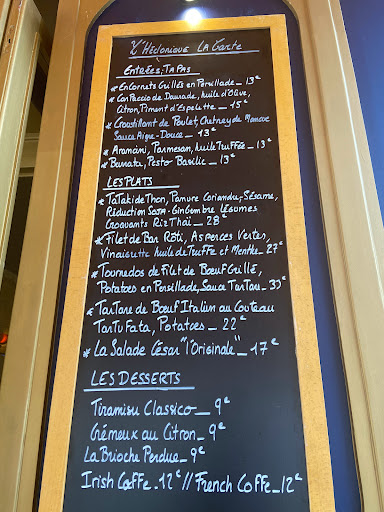 L'Hédonique La Carte
Entrées, Tapas
* Encornets Grillés en Persillade_ 13€
* Carpaccio de Daurade, huile d'Olive,
Citron, Piment d'Espelette_ 15€
* Croustillant de Poulet, Chutney de Mangue
Sauce Aigre-Douce_ 13€
* Arancini, Parmesan, huile Truffée_ 13€
* Burrata, Pesto Basilic_ 13€
Les Plats
* Tataki de Thon, Panure Coriandre, Sésame,
Réduction Soja-Gingembre Légumes
Croquants Riz Thaï_ 28€
* Filet de Bar Rôti, Asperges Vertes
Vinaigrette huile de Truffe et Menthe_ 27€
* Tournedos de Filet de Bœuf Grillé,
Potatoes en Persillade, Sauce Tartare_ 30€
* Tartare de Bœuf Italien au Couteau
Tartufata, Potatoes_ 22€
* La Salade César "l'Originale"_ 17€
Les Desserts
Tiramisu Classico_ 9€
Crémeux au Citron_ 9€
La Brioche Perdue_ 9€
Irish Coffe_12€ // French Coffe_12€